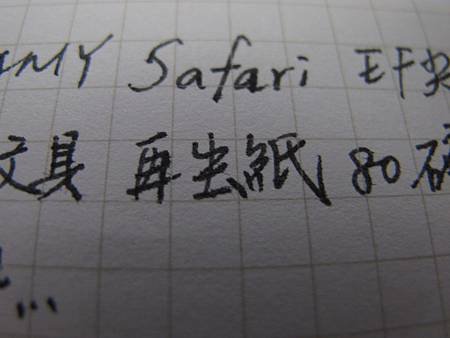 AMY Safari EF尖
文具 再生紙 80磅
...